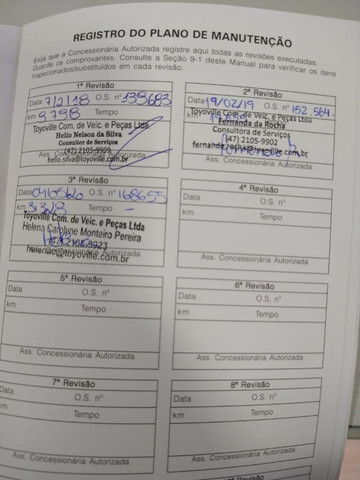 REGISTRO DO PLANO DE MANUTENÇÃO
Exija que a Concessionária Autorizada registre aqui todas as revisões executadas.
Guarde os comprovantes. Consulte a Seção 9-1 deste Manual para verificar os itens
inspecionados/substituídos em cada revisão.
1ª Revisão
Data 7/2/18 O.S. nº 139683
km 9798 Tempo
Toyoville Com. de Veic. e Peças Ltda
Helio Nelson da Silva
Consultor de Serviços
(47) 2105-9909
Ass.
helio.silva@toyoville.com.br
2ª Revisão
Data 19/02/19 O.S. nº 152.564
km
Toyoville Com. de Veic. e Peças Ltda
Fernanda da Rocha
Consultora de Serviços
(47) 2105-9902
Ass.
3ª Revisão
Data O.S. nº 168655
km 31318 Tempo -
Toyoville Com. de Veic. e Peças Ltda
Helena Carolyne Monteiro Pereira
(47) 2105-9923
helenac@toyoville.com.br
4ª Revisão
Data O.S. nº
km Tempo
Ass. Concessionária Autorizada
5ª Revisão
Data O.S. nº
km Tempo
Ass. Concessionária Autorizada
6ª Revisão
Data O.S. nº
km Tempo
Ass. Concessionária Autorizada
7ª Revisão
Data O.S. nº
km Tempo
Ass. Concessionária Autorizada
8ª Revisão
Data O.S. nº
km Tempo
Ass. Concessionária Autorizada